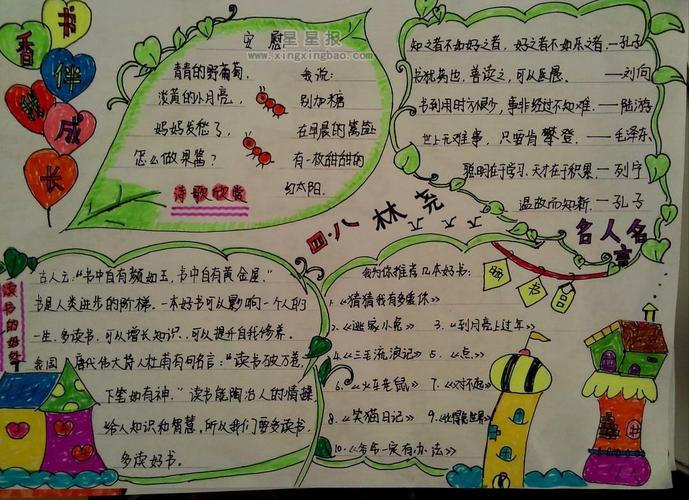 书香伴我成长
安慰
青青的野葡萄,
淡黄的小月亮,
妈妈发愁了,
怎么做果酱?
我说:
别加糖
在早晨的篱笆
有一枚甜甜的
红太阳.
诗歌欣赏
星星报
www.xingxingbao.com
知之者不如好之者,好之者不如乐之者.—孔子
书犹药也,善读之,可以医愚.——刘向
书到用时方恨少,事非经过不知难.—陆游
世上无难事,只要肯攀登.—毛泽东
聪明在于学习,天才在于积累.—列宁
温故而知新.—孔子
名人名言
四.八 林尧
读书的好处
古人云:“书中自有颜如玉,书中自有黄金屋.”
书是人类进步的阶梯.一本好书可以影响一个人的
一生.多读书,可以增长知识,可以提升自我修养.
我国唐代伟大诗人杜甫有句名言:“读书破万卷,
下笔如有神.”读书能陶冶人的情操,
给人知识和智慧,所以我们要多读书,
多读好书.
我为你推荐几本好书:
1.《猜猜我有多爱你》
2.《逃家小兔》 3.《到月亮上过年》
4.《三毛流浪记》 5.《点.》
6.《火车老鼠》 7.《对不起》
8.《笑猫日记》 9.
10.《爷爷一定有办法》